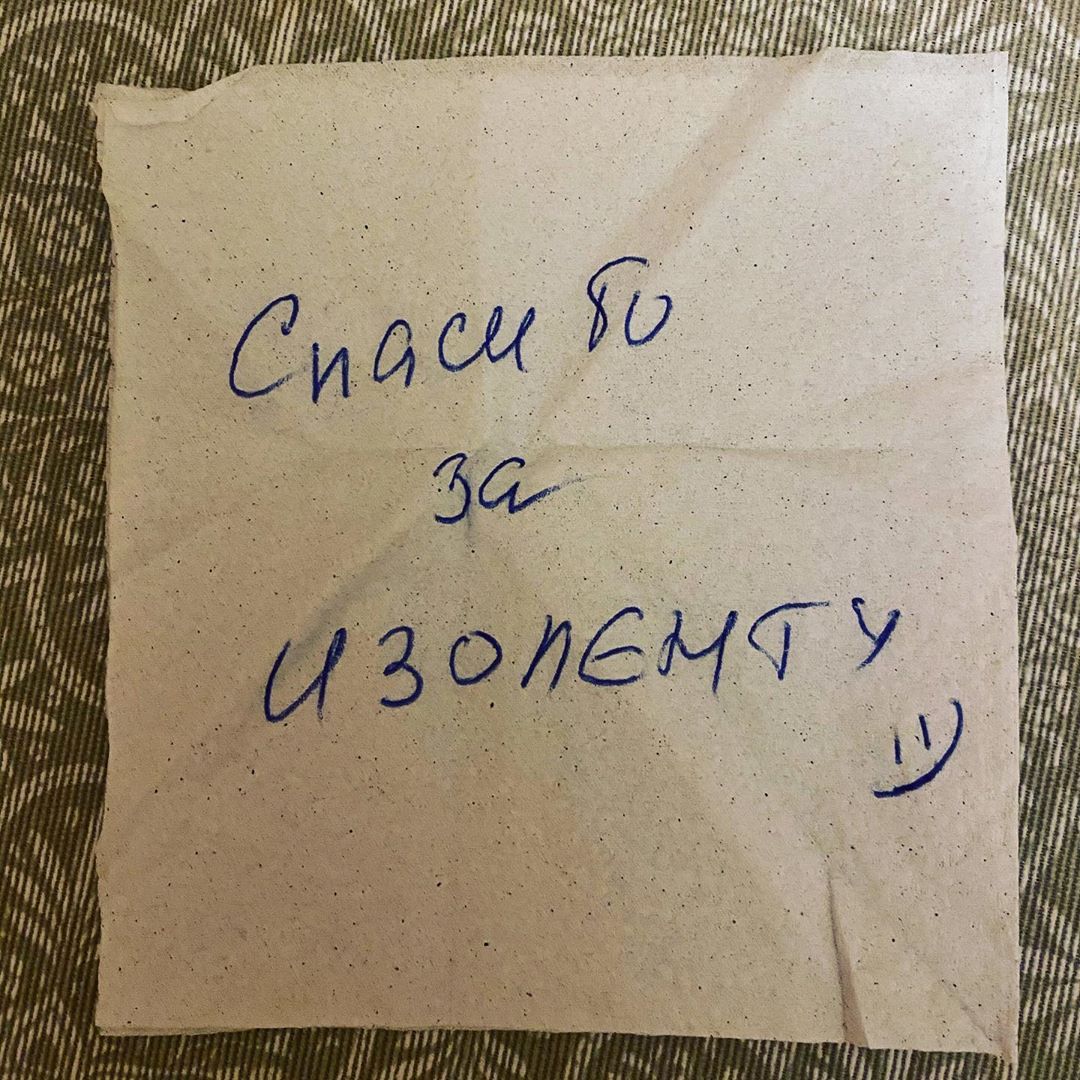 Спасибо
за
ИЗОЛЕНТУ
:)